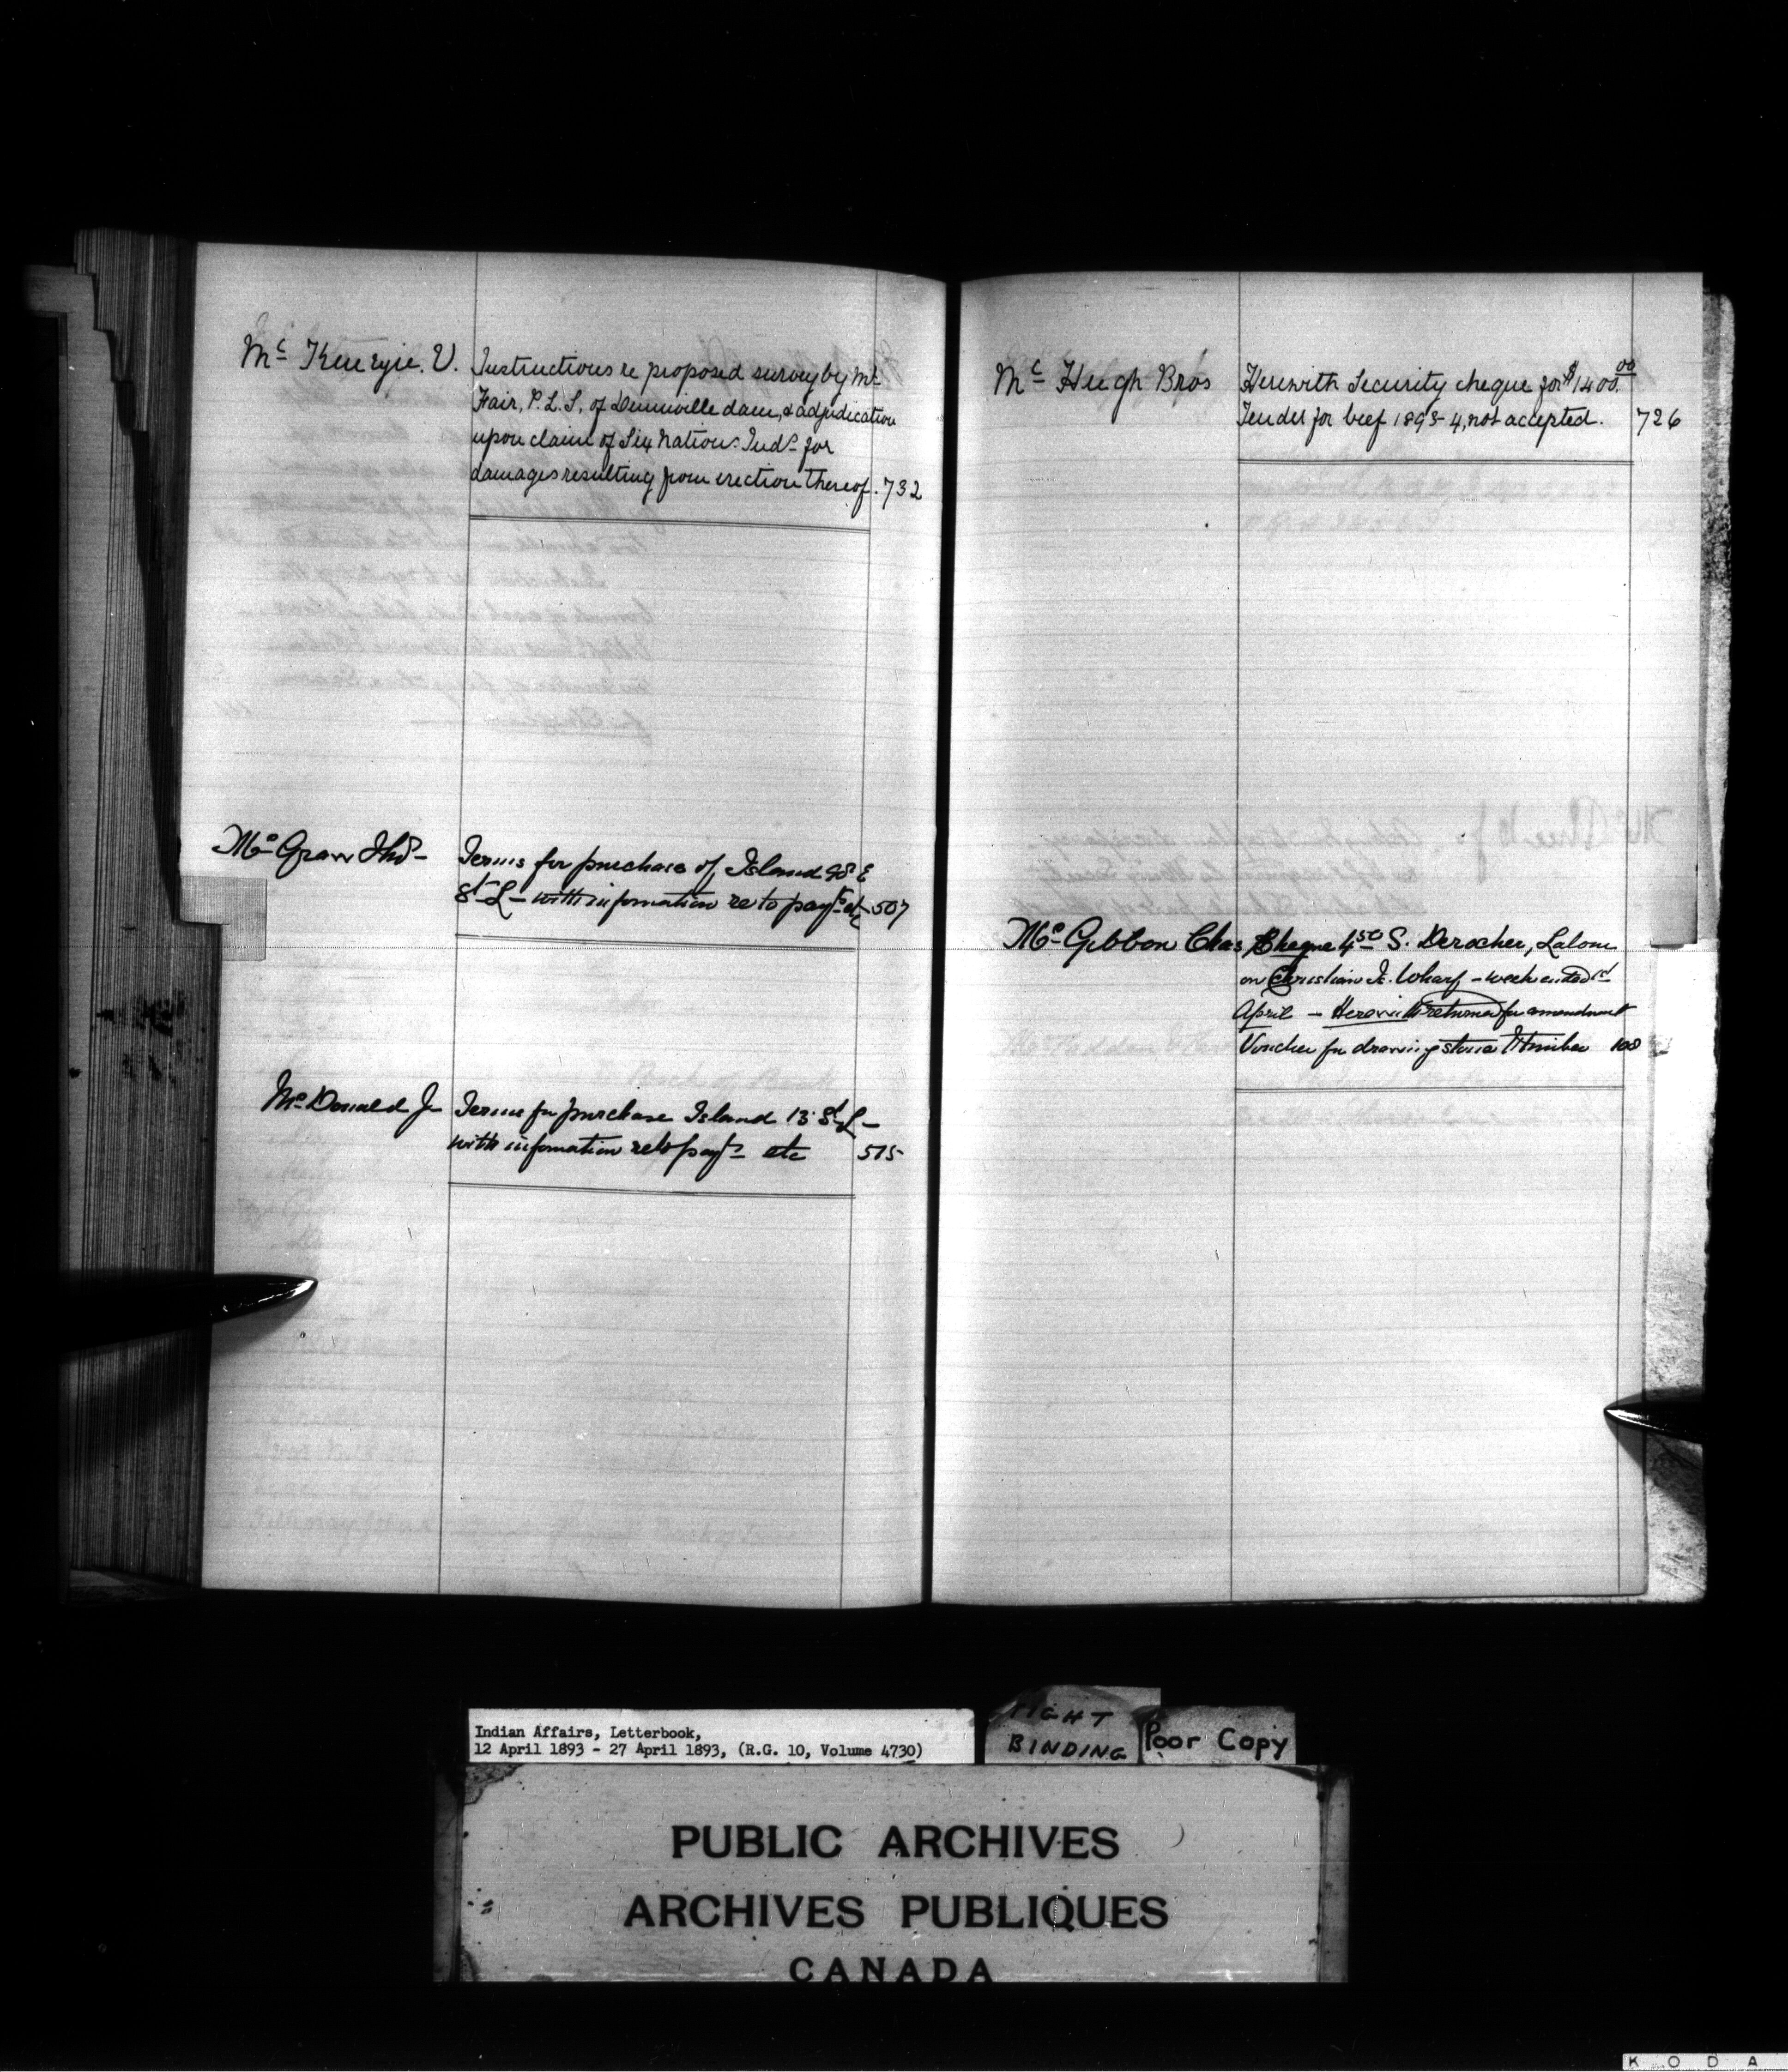 Mc Kenzie. V. Instructions re proposed survey by Mr
Fair, P.L.S. of Dunnville dam, & adjudication
upon claim of Six Nations Inds for
damages resulting from erection thereof. 732
Mc Graw Thos Terms for purchase of Island 98 E
St L – with information re to payts etc 507
Mc Donald J Terms for purchase Island 13 St L –
with information re to payts etc 515
Mc Hugh Bros Herewith Security cheque for $1400.00
Tender for beef 1893-4, not accepted. 726
Mc Gibbon Chas Cheque 4.50 S. Derocher, Labour
on Christian Is. Wharf – week ended 1st
April – Herewith returned for amendment
Voucher for drawing stone & timber 100
Indian Affairs, Letterbook,
12 April 1893 - 27 April 1893, (R.G. 10, Volume 4730)
TIGHT
BINDING
Poor Copy
PUBLIC ARCHIVES
ARCHIVES PUBLIQUES
CANADA
KODA